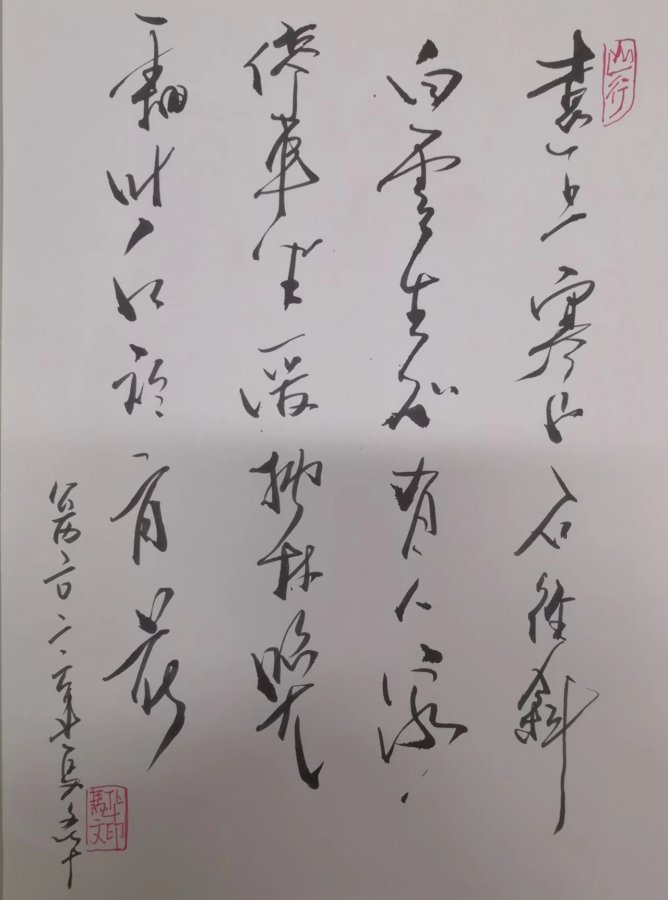 山行
遠上寒山石径斜
白雲生处有人家
停車坐愛楓林晚
霜叶红於二月花